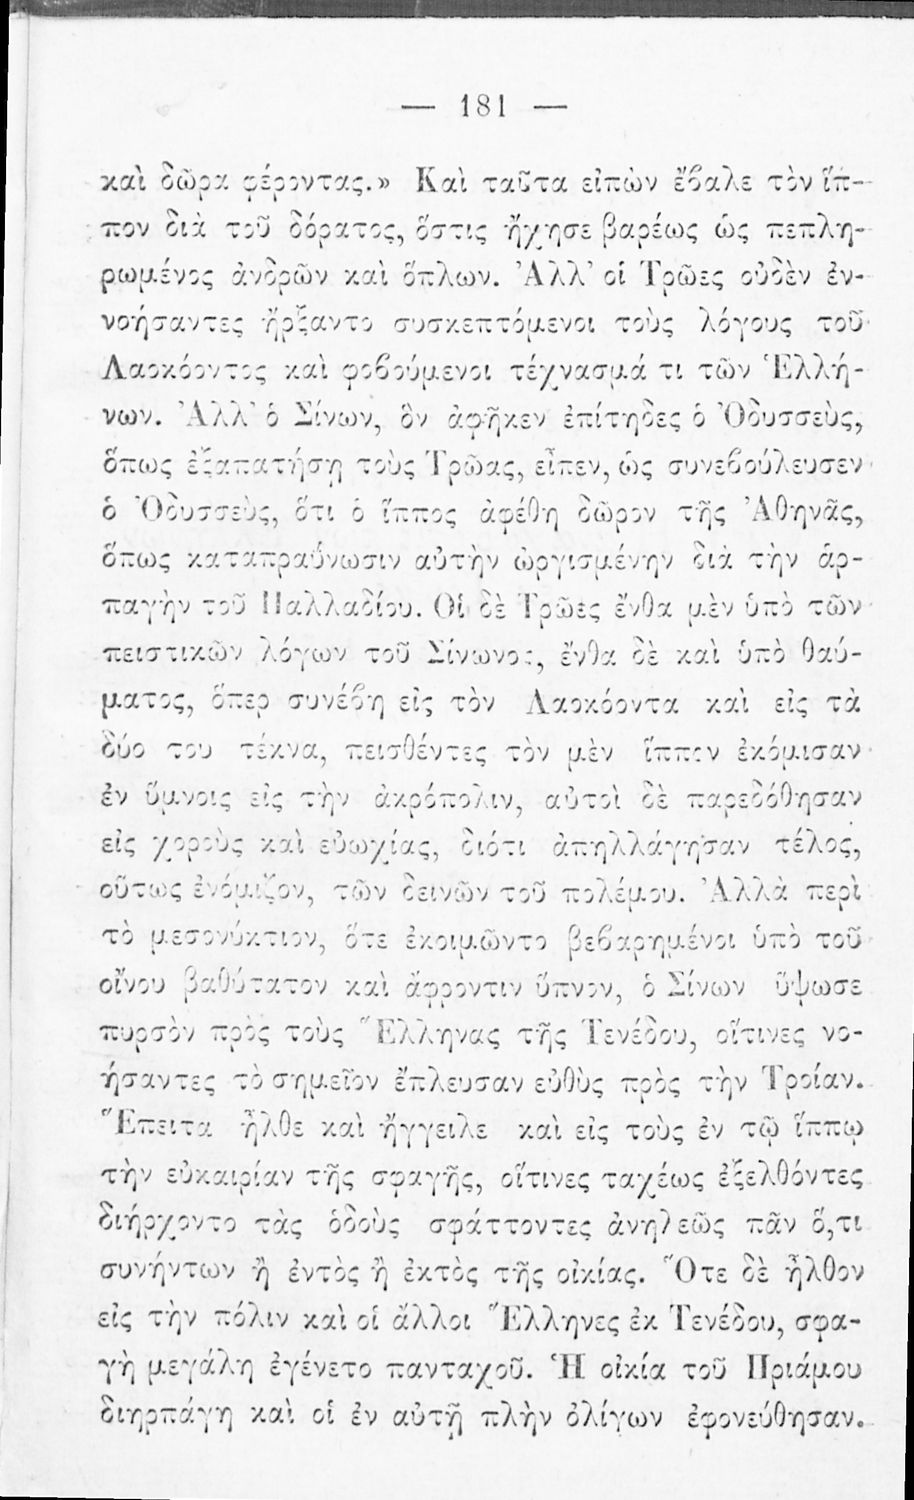 — 181 —
καὶ δῶρα φέροντας.» Καὶ ταῦτα εἰπὼν ἔβαλε τὸν ἵπ-
πον διὰ τοῦ δόρατος, ὅστις ἤχησε βαρέως ὡς πεπλη-
ρωμένος ἀνδρῶν καὶ ὅπλων. Ἀλλ’ οἱ Τρῶες οὐδὲν ἐν-
νοήσαντες ἤρξαντο συσκεπτόμενοι τοὺς λόγους τοῦ
Λαοκόοντος καὶ φοβούμενοι τέχνασμά τι τῶν Ἑλλή-
νων. Ἀλλ’ ὁ Σίνων, ὃν ἀφῆκεν ἐπίτηδες ὁ Ὀδυσσεὺς,
ὅπως ἐξαπατήσῃ τοὺς Τρῶας, εἶπεν, ὡς συνεβούλευσεν
ὁ Ὀδυσσεὺς, ὅτι ὁ ἵππος ἀφέθη δῶρον τῆς Ἀθηνᾶς,
ὅπως καταπραΰνωσιν αὐτὴν ὠργισμένην διὰ τὴν ἁρ-
παγὴν τοῦ Παλλαδίου. Οἱ δὲ Τρῶες ἔνθα μὲν ὑπὸ τῶν
πειστικῶν λόγων τοῦ Σίνωνος, ἔνθα δὲ καὶ ὑπὸ θαύ-
ματος, ὅπερ συνέβη εἰς τὸν Λαοκόοντα καὶ εἰς τὰ
δύο του τέκνα, πεισθέντες τὸν μὲν ἵππον ἐκόμισαν
ἐν ὕμνοις εἰς τὴν ἀκρόπολιν, αὐτοὶ δὲ παρεδόθησαν
εἰς χοροὺς καὶ εὐωχίας, διότι ἀπηλλάγησαν τέλος,
οὕτως ἐνόμιζον, τῶν δεινῶν τοῦ πολέμου. Ἀλλὰ περὶ
τὸ μεσονύκτιον, ὅτε ἐκοιμῶντο βεβαρημένοι ὑπὸ τοῦ
οἴνου βαθύτατον καὶ ἄφροντιν ὕπνον, ὁ Σίνων ὕψωσε
πυρσὸν πρὸς τοὺς Ἕλληνας τῆς Τενέδου, οἵτινες νο-
ήσαντες τὸ σημεῖον ἔπλευσαν εὐθὺς πρὸς τὴν Τροίαν.
Ἔπειτα ἦλθε καὶ ἤγγειλε καὶ εἰς τοὺς ἐν τῷ ἵππῳ
τὴν εὐκαιρίαν τῆς σφαγῆς, οἵτινες ταχέως ἐξελθόντες
διήρχοντο τὰς ὁδοὺς σφάττοντες ἀνηλεῶς πᾶν ὅ,τι
συνήντων ἢ ἐντὸς ἢ ἐκτὸς τῆς οἰκίας. Ὅτε δὲ ἦλθον
εἰς τὴν πόλιν καὶ οἱ ἄλλοι Ἕλληνες ἐκ Τενέδου, σφα-
γὴ μεγάλη ἐγένετο πανταχοῦ. Ἡ οἰκία τοῦ Πριάμου
διηρπάγη καὶ οἱ ἐν αὐτῇ πλὴν ὀλίγων ἐφονεύθησαν.